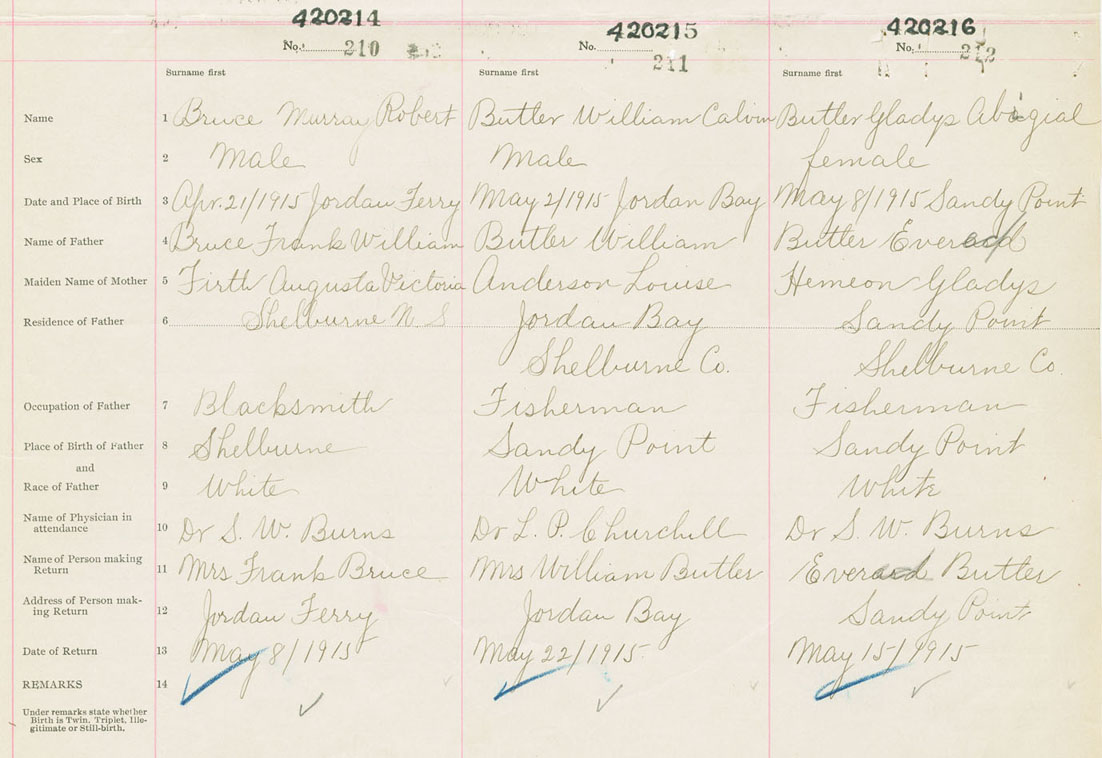 420214 420215 420216
No. 210 No. 211 No. 212
Surname first Surname first Surname first
Name 1 Bruce Murray Robert Butler William Calvin Butler Gladys Abigial
Sex 2 Male Male female
Date and Place of Birth 3 Apr. 21/1915 Jordan Ferry May 2/1915 Jordan Bay May 8/1915 Sandy Point
Name of Father 4 Bruce Frank William Butler William Butler
Maiden Name of Mother 5 Firth Augusta Victoria Anderson Louise Hemeon Gladys
Residence of Father 6 Shelburne N S Jordan Bay Sandy Point
Shelburne Co. Shelburne Co.
Occupation of Father 7 Blacksmith Fisherman Fisherman
Place of Birth of Father 8 Shelburne Sandy Point Sandy Point
and
Race of Father 9 White White White
Name of Physician in
attendance 10 Dr S. W. Burns Dr L. P. Churchill Dr S. W. Burns
Name of Person making
Return 11 Mrs Frank Bruce Mrs William Butler Butler
Address of Person mak-
ing Return 12 Jordan Ferry Jordan Bay Sandy Point
Date of Return 13 May 8/1915 May 22/1915 May 15/1915
REMARKS 14
Under remarks state whether
Birth is Twin, Triplet, Ille-
gitimate or Still-birth.